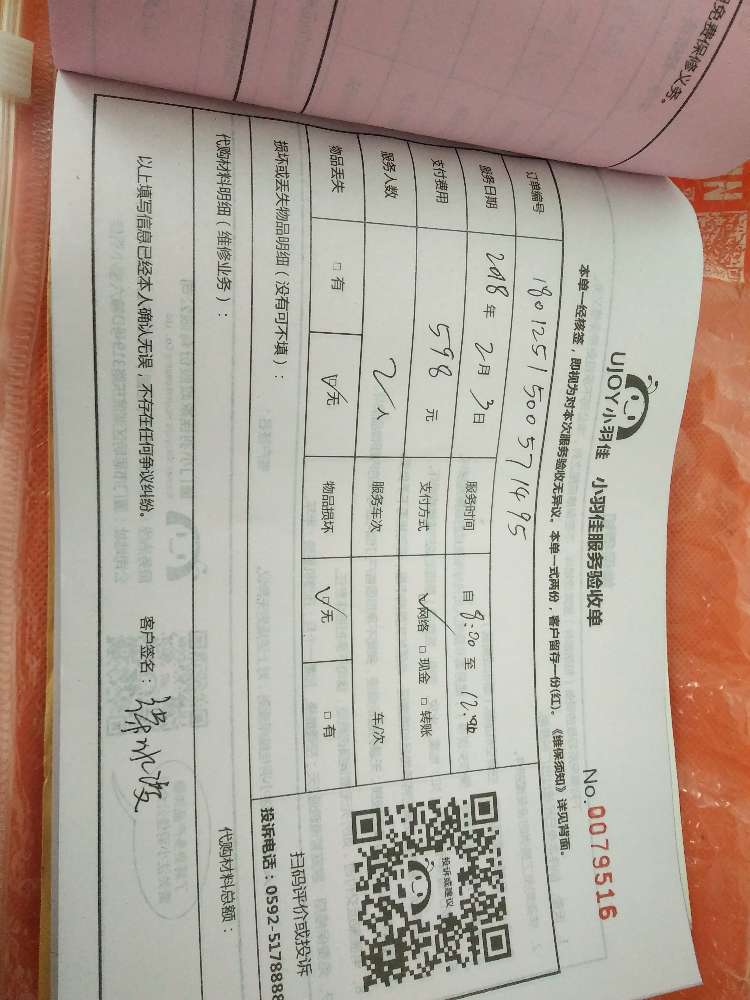 免费保修义务。
UJOY小羽佳 小羽佳服务验收单
No.0079516
本单一经核签，即视为对本次服务验收无异议。本单一式两份，客户留存一份(红)。《维保须知》详见背面。
订单编号 1801251500571495
服务日期 2018年2月3日 服务时间 自8:30至12:30
支付费用 598元 支付方式 ☑网络 □现金 □转账
服务人数 2人 服务车次 车/次
物品丢失 □有 ☑无 物品损坏 ☑无 □有
投诉或建议
扫码评价或投诉
投诉电话：0592-5178888
损坏或丢失物品明细（没有可不填）：
代购材料明细（维修业务）： 代购材料总额：
以上填写信息已经本人确认无误，不存在任何争议纠纷。 客户签名：